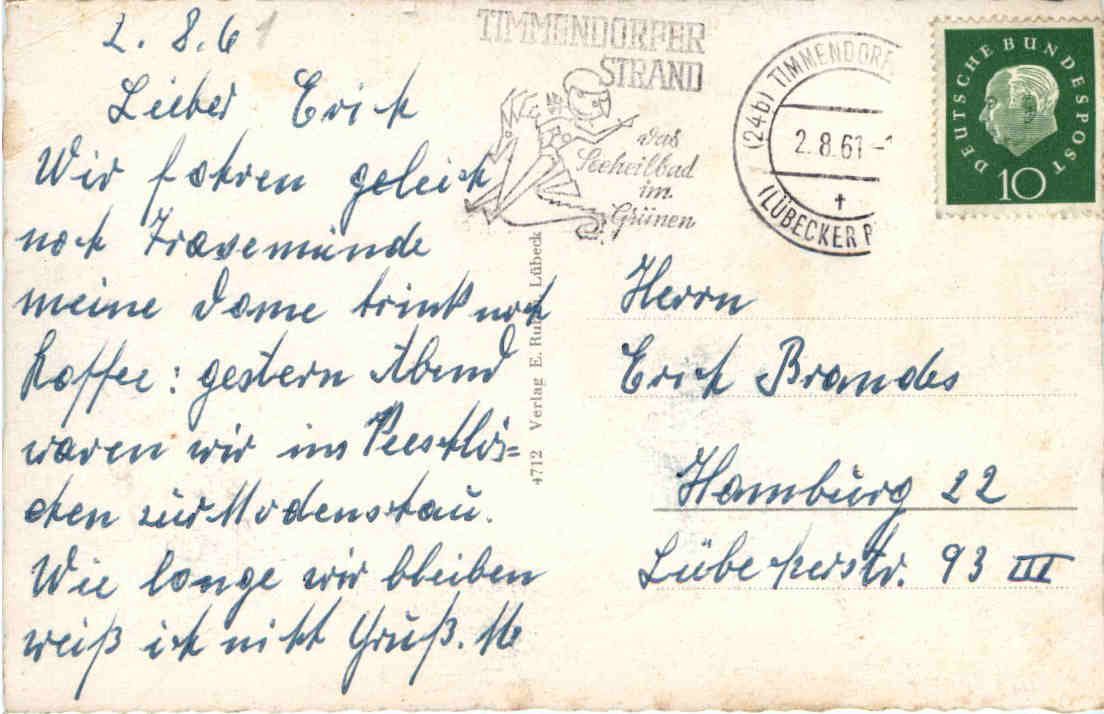 2.8.61
Lieber Erich
Wir fahren geleich
noch Travemünde
meine Dame trink noch
Kaffee: gestern Abend
waren wir ins
chen zur Modenschau.
Wie lange wir bleiben
weiß ich nicht Gruß.
TIMMENDORFER
STRAND
das
Seeheilbad
im
Grünen
(24b) TIMMENDORF
2.8.61-1
(LÜBECKER
DEUTSCHE BUNDESPOST
10
4712 Verlag E. Lübeck
Herrn
Erich Brandes
Hamburg 22
Lübeckerstr. 93 III